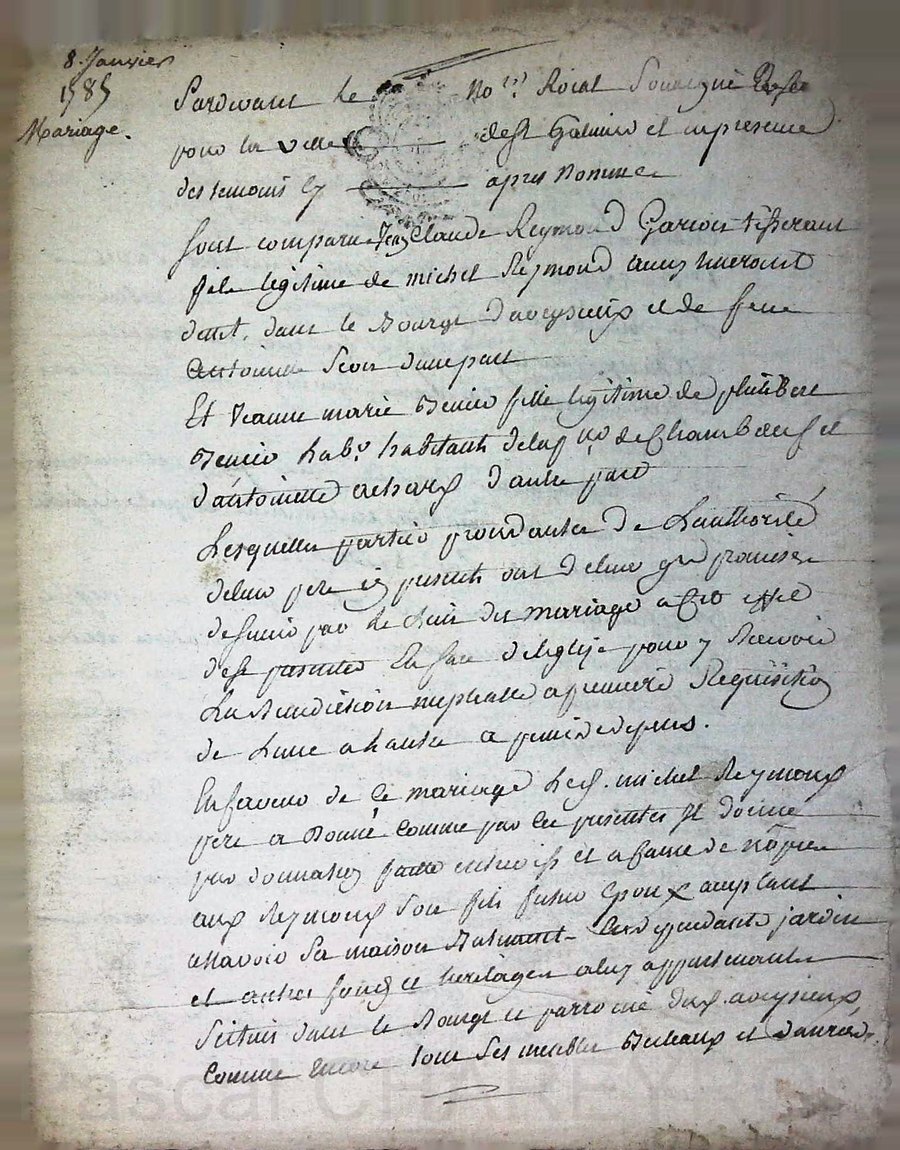 8. Janvier
1785
Mariage.
Pardevant le No.re Roial Soussigné Reservé
pour la ville de St Galmier et en presence
des temoins cy apres Nommés
Sont comparu Jean Claude Reymond Garcon tisserant
fils legitime de michel Reymond aussy tisserant
demt. dans le Bourg d'aveyzieux et de feue
Antoinette d'une part
Et Jeanne marie fille legitime de philibert
habt. habitants de la p. de Chambœuf et
d'antoinette achard d'autre part
Lesquelles parties procedantes de L'authorité
de leur pere cy presents ont de leur gré promis
de s'unir par le Lien du mariage a cet effet
de se presenter En face d'Eglise pour y Recevoir
La Benediction nuptialle a premiere Requisition
de L'une a L'autre a peine de depens.
En faveur de ce mariage Led. michel Reymond
pere a Donné comme par ces presentes Il donne
par donnation faitte entre vifs et a cause de nôpces
aud Reymond Son fils futur Epoux acceptant
a Savoir Sa maison Batiment dependants jardin
et autres fonds et heritages a luy appartenants
Scitués dans le Bourg et parroisse dud. aveyzieux
comme encore tous Ses meubles Bestiaux et Danrées.